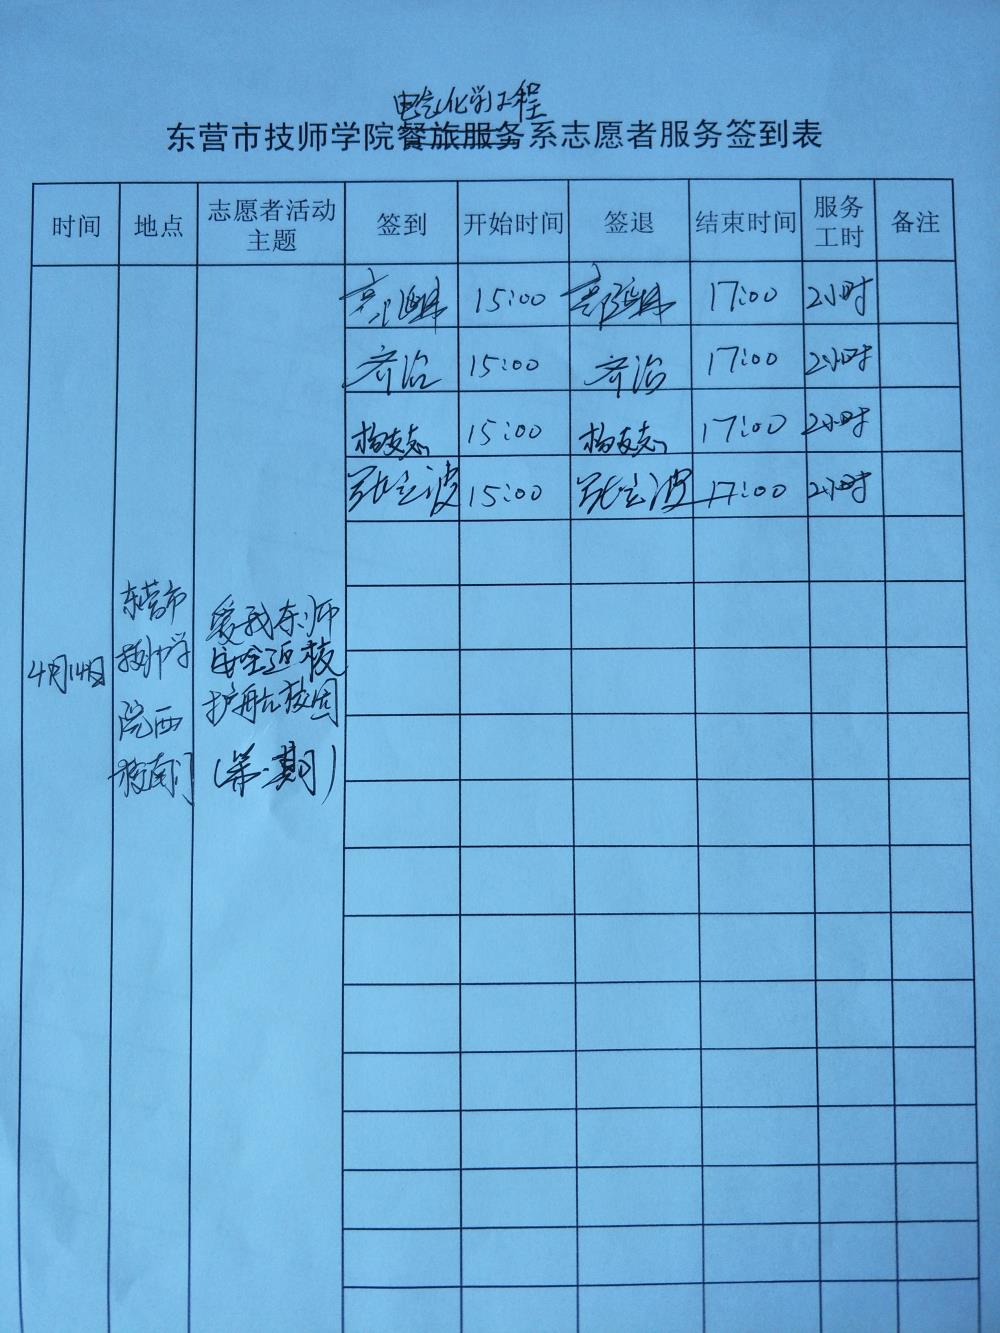 电气化学工程
东营市技师学院餐旅服务系志愿者服务签到表
时间 地点 志愿者活动主题 签到 开始时间 签退 结束时间 服务工时 备注
15:00 17:00 2小时
齐治 15:00 齐治 17:00 2小时
杨友志 15:00 杨友志 17:00 2小时
张立波 15:00 张立波 17:00 2小时
4月14日
东营市
技师学
院西
校南门
爱我东师
护航校园
(第一期)